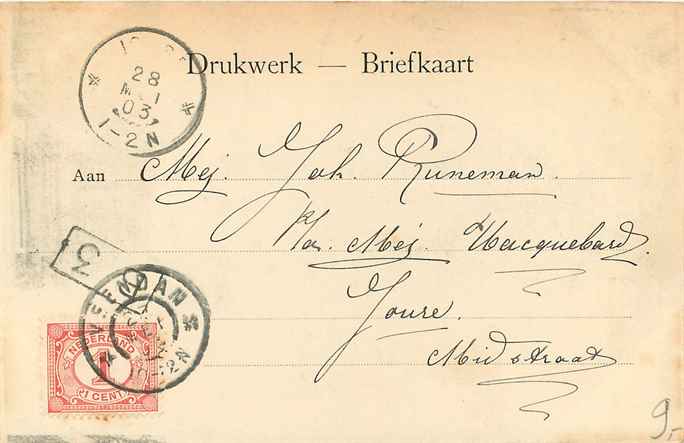 Drukwerk — Briefkaart
28
03
1-2 N
Aan Mej. Joh. Runeman.
p/a. Mej. Hacquebard.
Joure.
Midstraat
3
VEENDAM
NEDERLAND
1
1 CENT
9,-